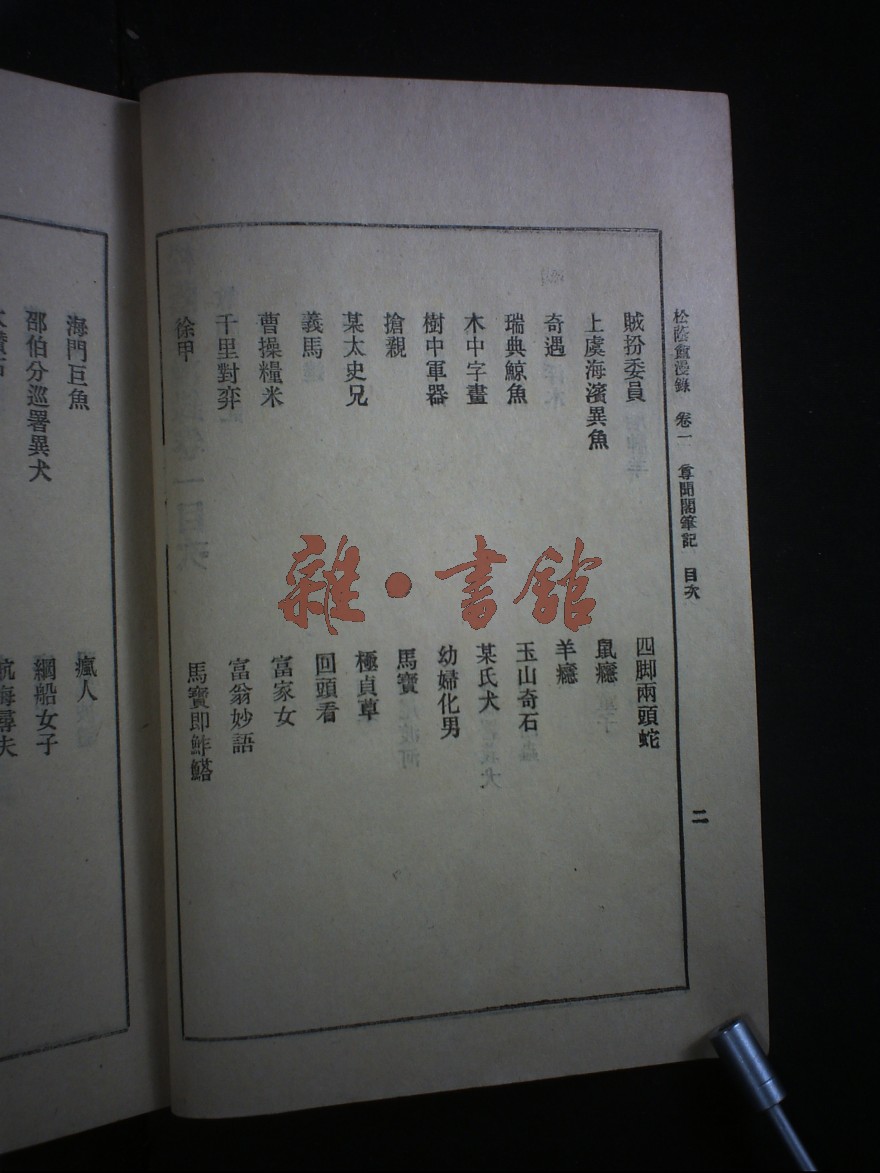 松蔭盫漫錄 卷一 尊聞閣筆記 目次
二
賊扮委員
四脚兩頭蛇
上虞海濱異魚
鼠癮
奇遇
羊癮
瑞典鯨魚
玉山奇石
木中字畫
某氏犬
樹中軍器
幼婦化男
搶親
馬寶
某太史兄
極貞草
義馬
回頭看
曹操糧米
富家女
千里對弈
富翁妙語
徐甲
馬寶即鮓鰭
海門巨魚
瘋人
邵伯分巡署異犬
綱船女子
航海尋夫
雜·書館